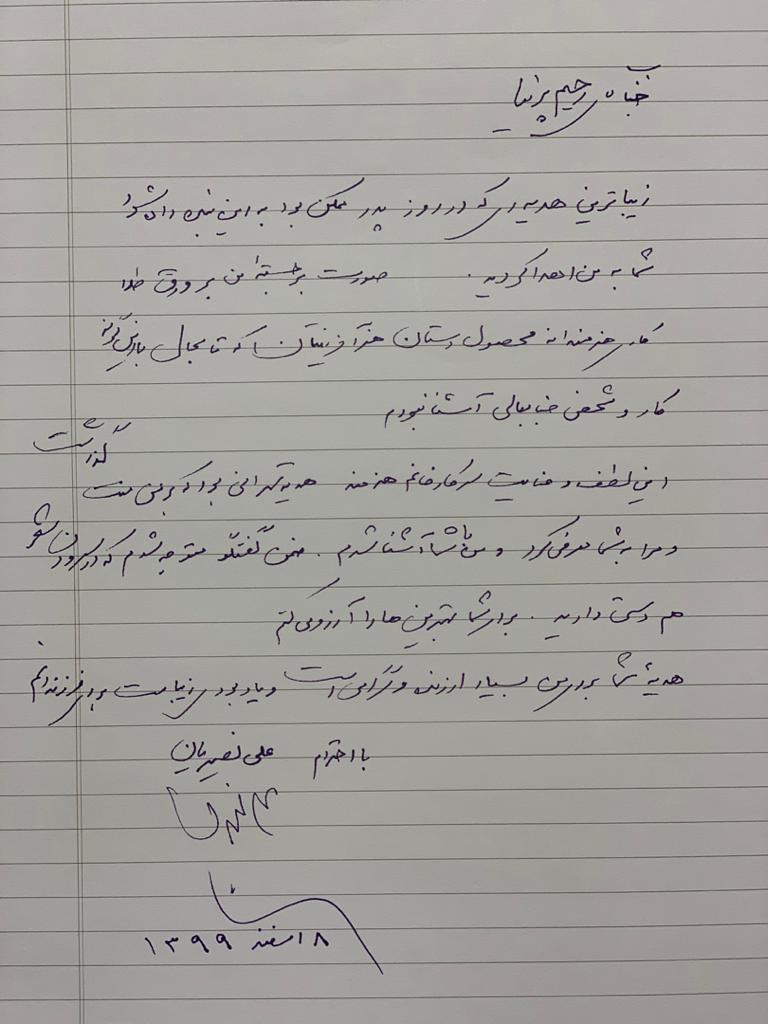 جناب آقای رحیم پرنیا
زیباترین هدیه ای که در روز پدر ممکن بود به این بنده داده شود
شما به من اهدا کردید . صورت برجسته من بر ورق طلا
کار هنرمندانه محصول دستان هنرآفرینتان که تا بحال با
کار و شخص جنابعالی آشنا نبودم
این لطف و عنایت سرکار خانم هنرمند هدیه گرانی بود که بر من منت گذاشت
و مرا به شما معرفی کرد و من با شما آشنا شدم . ضمن گفتگو متوجه شدم که در سرودن شعر
هم دستی دارید . برای شما بهترین ها را آرزو می کنم
هدیهٔ شما برای من بسیار ارزنده و گرامی است و یادبودی زیباست برای فرزندانم .
با احترام علی نصیریان
۸ اسفند ۱۳۹۹